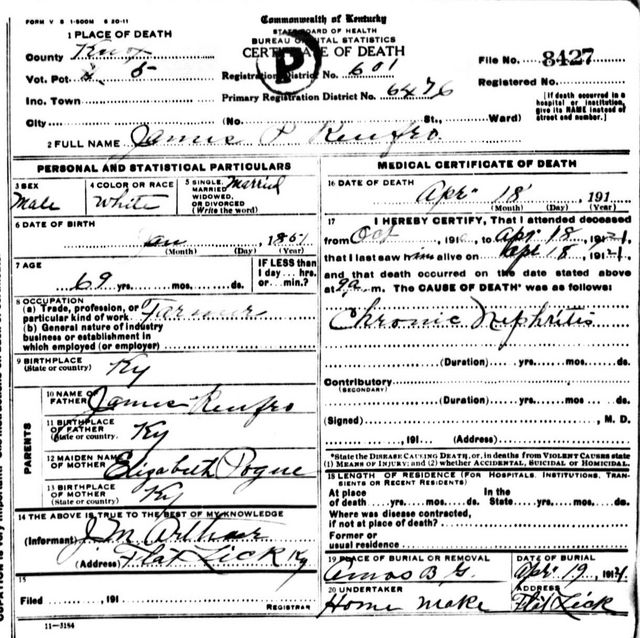 FORM V S 1-500M 6 20-11
Commonwealth of Kentucky
STATE BOARD OF HEALTH
BUREAU OF VITAL STATISTICS
CERTIFICATE OF DEATH
P
1 PLACE OF DEATH
County Knox
Vot. Pct 5
Inc. Town
City
Registration District No. 601
Primary Registration District No. 6476
(No. St., Ward)
File No. 8427
Registered No.
[If death occurred in a hospital or institution, give its NAME instead of street and number.]
2 FULL NAME James P Renfro
PERSONAL AND STATISTICAL PARTICULARS
3 SEX
Male
4 COLOR OR RACE
White
5 SINGLE, MARRIED WIDOWED, OR DIVORCED (Write the word)
Married
6 DATE OF BIRTH
Jan 1851
(Month) (Day) (Year)
7 AGE
69
IF LESS than 1 day... hrs. or min.?
8 OCCUPATION
(a) Trade, profession, or particular kind of work Farmer
(b) General nature of industry
business or establishment in
which employed (or employer)
9 BIRTHPLACE
(State or country) Ky
PARENTS
10 NAME OF FATHER James Renfro
11 BIRTHPLACE OF FATHER
(State or country. Ky
12 MAIDEN NAME OF MOTHER Elizabeth Pogue
13 BIRTHPLACE OF MOTHER
(State or country) Ky
14 THE ABOVE IS TRUE TO THE BEST OF MY KNOWLEDGE
(Informant) J M Arthur
(Address) Flat Lick Ky
15
Filed , 191
REGISTRAR
11-3184
MEDICAL CERTIFICATE OF DEATH
16 DATE OF DEATH
Apr 18 , 191
(Month) (Day) (Year)
17 I HEREBY CERTIFY, That I attended deceased
from Oct , 191 , to Apr 18, 1921,
that I last saw him alive on Apr 18, 1921,
and that death occurred on the date stated above
at 9a m. The CAUSE OF DEATH* was as follows:
Chronic Nephritis
(Duration) yrs. mos. ds.
Contributory
(SECONDARY)
(Duration) yrs. mos. ds.
(Signed) , M. D.
, 191 (Address)
*State the DISEASE CAUSING DEATH, or, in deaths from VIOLENT CAUSES state
(1) MEANS OF INJURY; and (2) whether ACCIDENTAL, SUICIDAL OR HOMICIDAL.
18 LENGTH OF RESIDENCE (FOR HOSPITALS, INSTITUTIONS, TRANSIENTS OR RECENT RESIDENTS)
At place of death yrs. mos. ds. In the State yrs. mos. ds.
Where was disease contracted,
if not at place of death?
Former or
usual residence
19 PLACE OF BURIAL OR REMOVAL
Amos B G.
DATE OF BURIAL
Apr 19, 1921
20 UNDERTAKER
Home Make
ADDRESS
Flat Lick